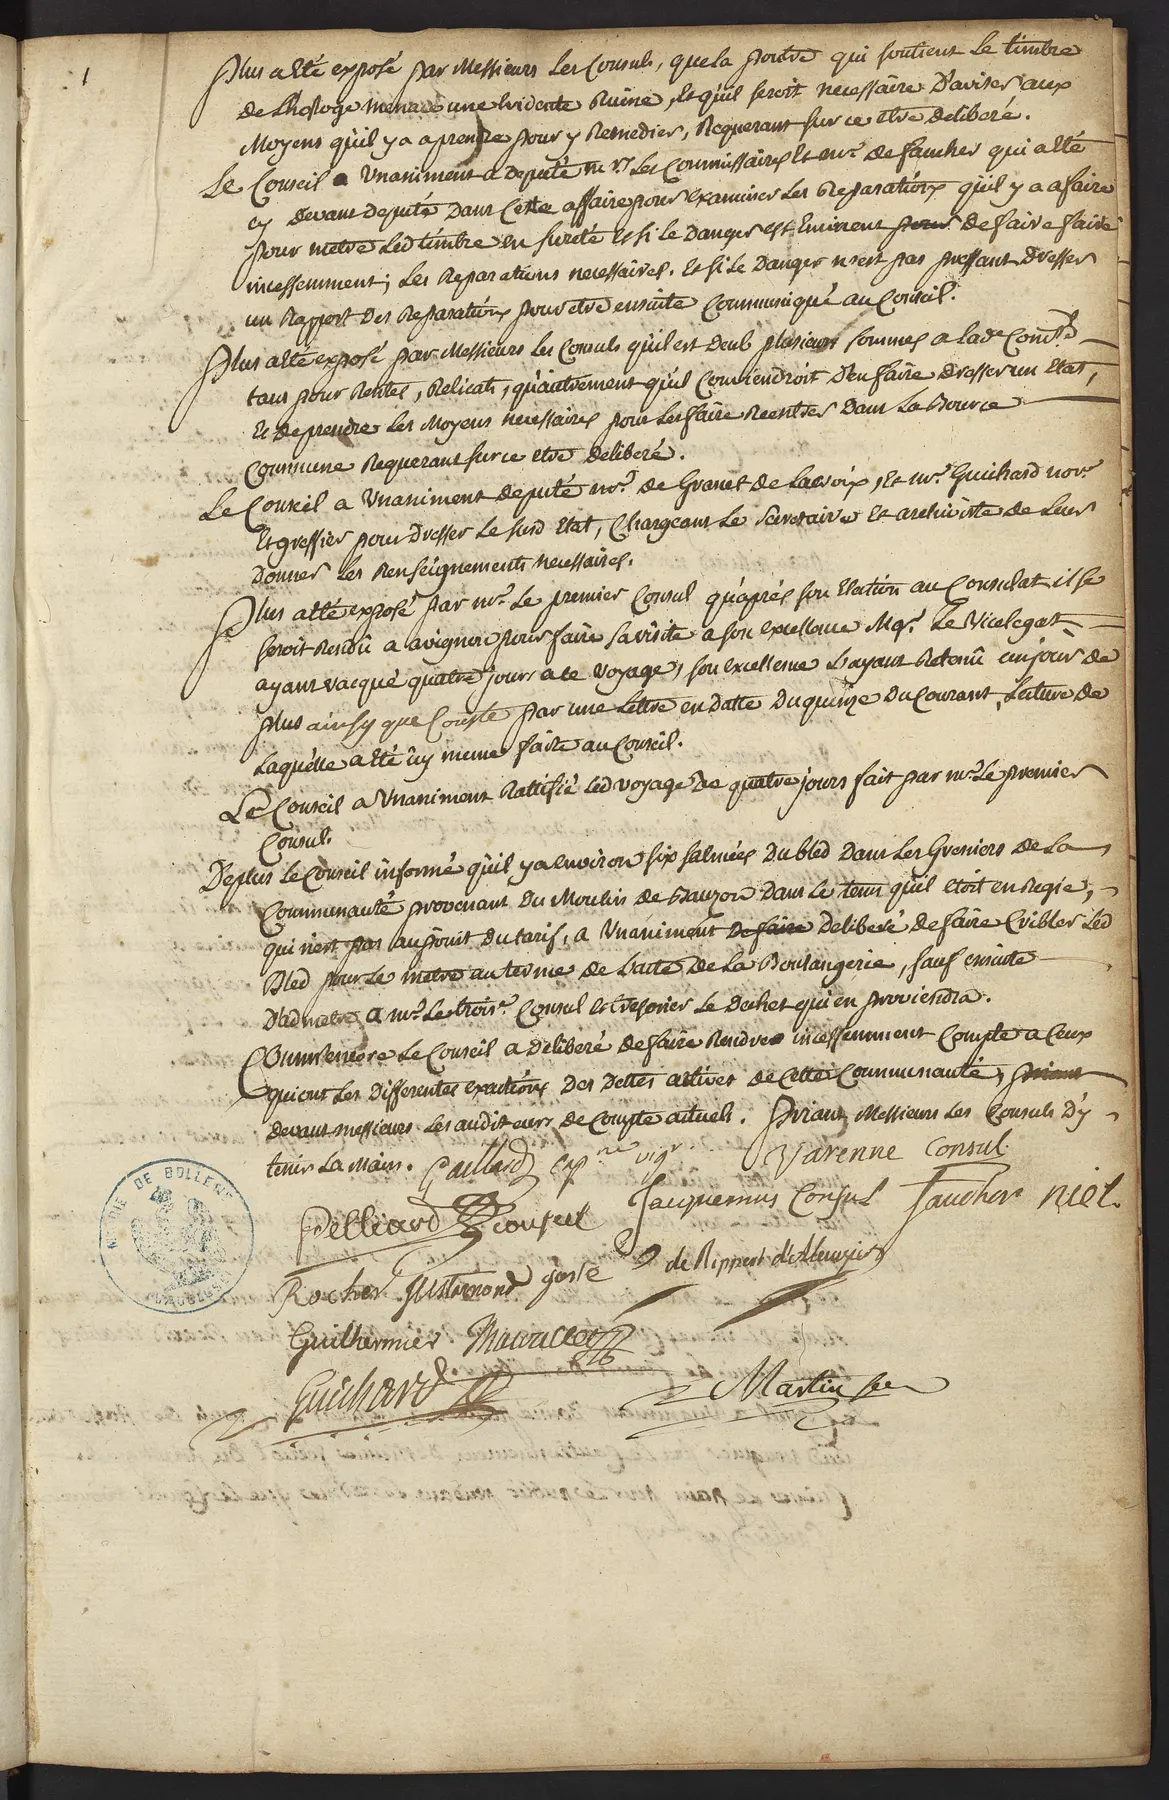 1
Plus a été exposé par Messieurs Les Consuls, que la poutre qui soutient Le timbre
de L'horloge menace une Evidente Ruine, Et qu'il seroit necessaire D'aviser aux
Moyens qu'il y a a prendre pour y Remedier, Requerant sur ce etre deliberé.
Le Conseil a Unaniment a deputé mrs Les Commissaires Et mr. de faucher qui a été
cy devant deputé Dans Cette affaire pour examiner Les Reparations qu'il y a a faire
pour metre Led timbre en sureté Et si Le Danger est Eminent pour de faire faire
incessemment; Les Reparations necessaires. Et si Le Danger n'est pas pressant Dresser
un Rapport Des Reparations pour etre ensuite Communiqué au Conseil.
Plus a été exposé par Messieurs Les Consuls qu'il est deub plusieurs sommes a Lade Comté
tant pour Rentes, Relicats, qu'autrement qu'il Conviendroit D'en faire dresser un Etat,
Et de prendre Les Moyens necessaires pour Les faire Rentrer Dans La Bource
Commune Requerant sur ce etre deliberé.
Le Conseil a Unaniment deputé mr. de Granet de Lacroix, Et mr. Guichard nore.
Et greffier pour Dresser Le susd Etat, Chargeant Le Secretaire Et archiviste de Leur
Donner Les Renseignements necessaires.
Plus a été exposé par mr. Le premier Consul qu'aprés son Election au Consulat il se
seroit Rendû a avignon pour faire sa visite a son excellence Mgr. Le Vicelegat
ayant vacqué quatre jours a ce Voyage, son excellence L'ayant Retenû un jour de
plus ainsy que Conste par une Lettre en datte Du quinze Du Courant, Lecture de
Laquelle a été icy meme faite au Conseil.
Le Conseil a Unaniment Rattifié Led voyage De quatre jours fait par mr. Le premier
Consul.
De plus Le Conseil informé qu'il y a environ six salmées Du bled Dans Les Greniers de La
Communauté provenant Du Moulin de Bauzon Dans Le tems qu'il etoit en Regie,
qui n'est pas au point du tarif, a Unaniment De faire Deliberé de faire Cribler Led
Bled pour Le metre au terme de L'acte De La Boulangerie, sauf ensuite
D'admetre a mr. Le trois.e Consul Et tresorier Le dechet qui en proviendra.
Comm'encore Le Conseil a Deliberé de faire Rendre incessemment Compte a Ceux
qui ont Les Differentes exactions Des Dettes actives de Cette Communauté, priant
devant messieurs Les auditeurs de Compte actuels. Priant Messieurs Les Consuls D'y
tenir La Main. Gaillard cap.ne vig.r Varenne Consul
Pelliard Conseil Jacquemus Consul Faucher niel.
Rocher de Rippert d'Alauzier
Guilhermier
Guichard Martin se
MAIRIE DE BOLLENE
VAUCLUSE